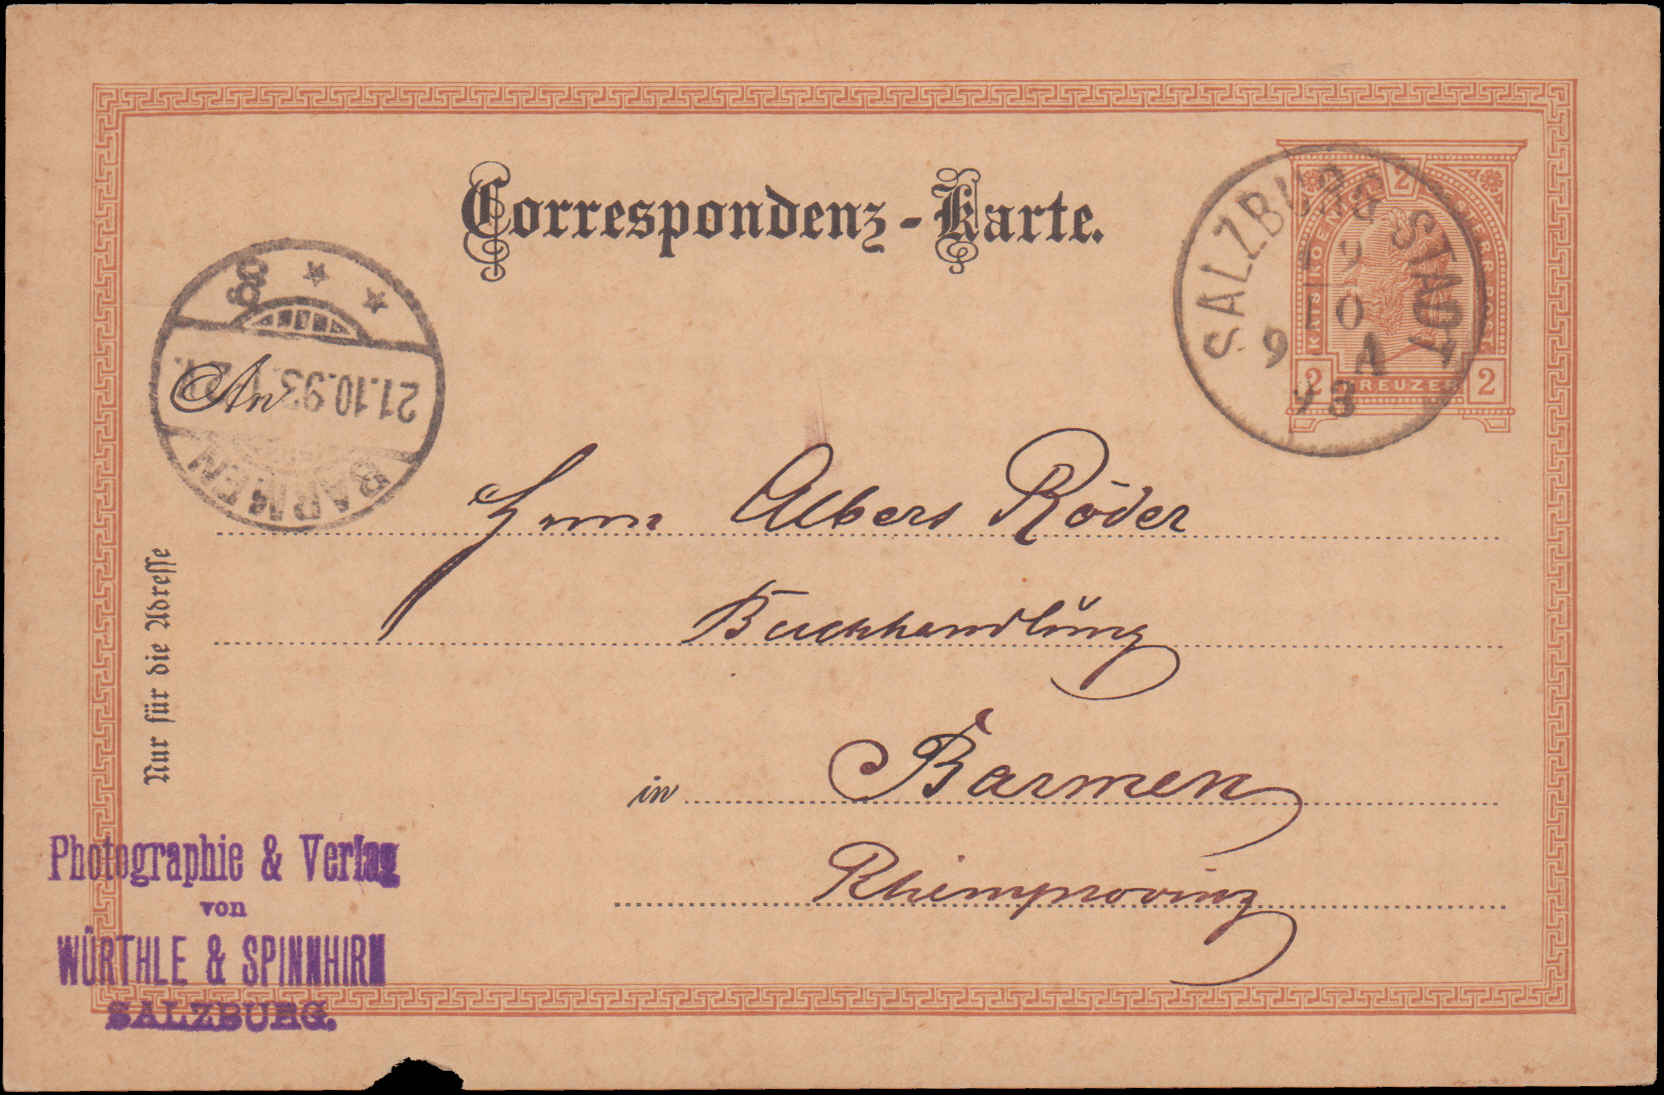 Correspondenz-Karte.
2
KAIS. KOENIGL. OESTERR. POST.
2 KREUZER 2
SALZBURG STADT
19
10
9 A
93
BARMEN
21.10.93.
* *
An
Herrn Albert Röder
Buchhandlung
in Barmen
Rheinprovinz
Nur für die Adresse
Photographie & Verlag
von
WÜRTHLE & SPINNHIRN
SALZBURG.